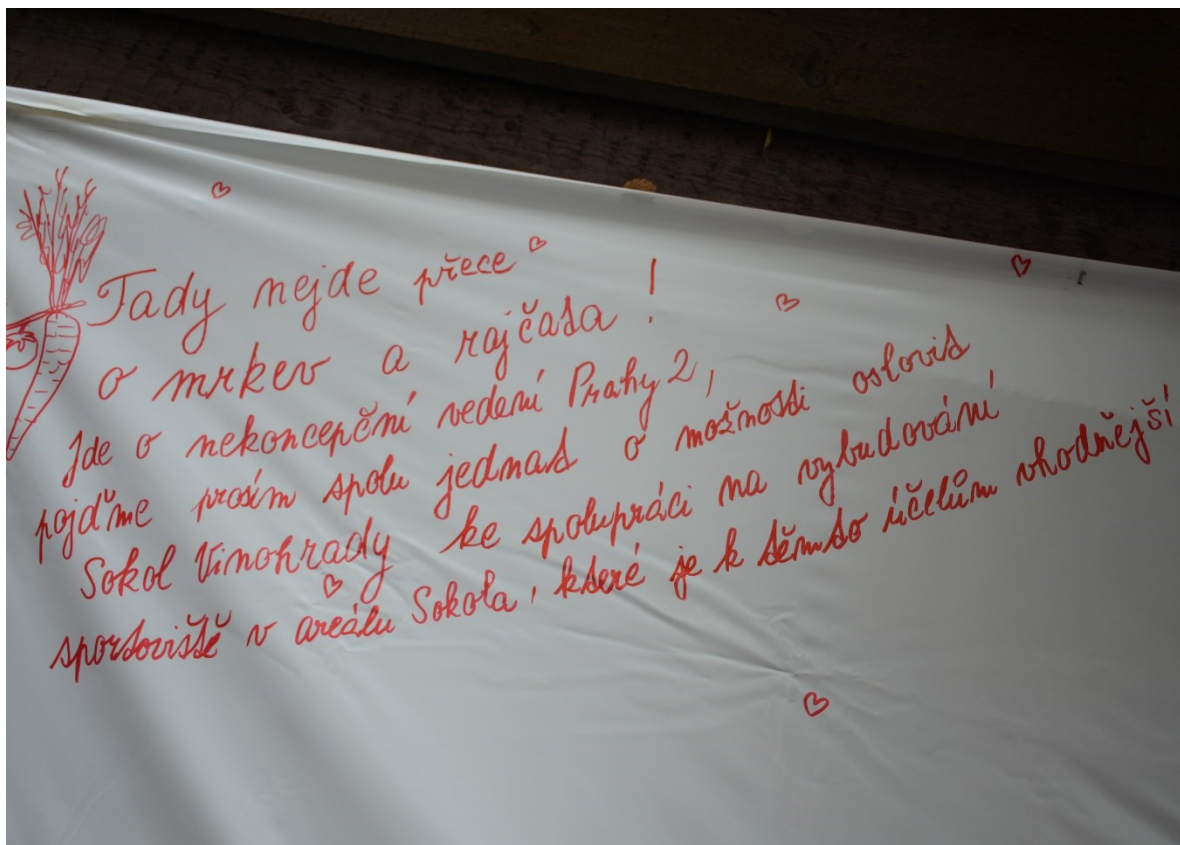 Tady nejde přece
o mrkev a rajčata!
Jde o nekoncepční vedení Prahy 2,
pojďme prosím spolu jednat o možnosti oslovit
Sokol Vinohrady ke spolupráci na vybudování
sportoviště v areálu Sokola, které je k těmto účelům vhodnější